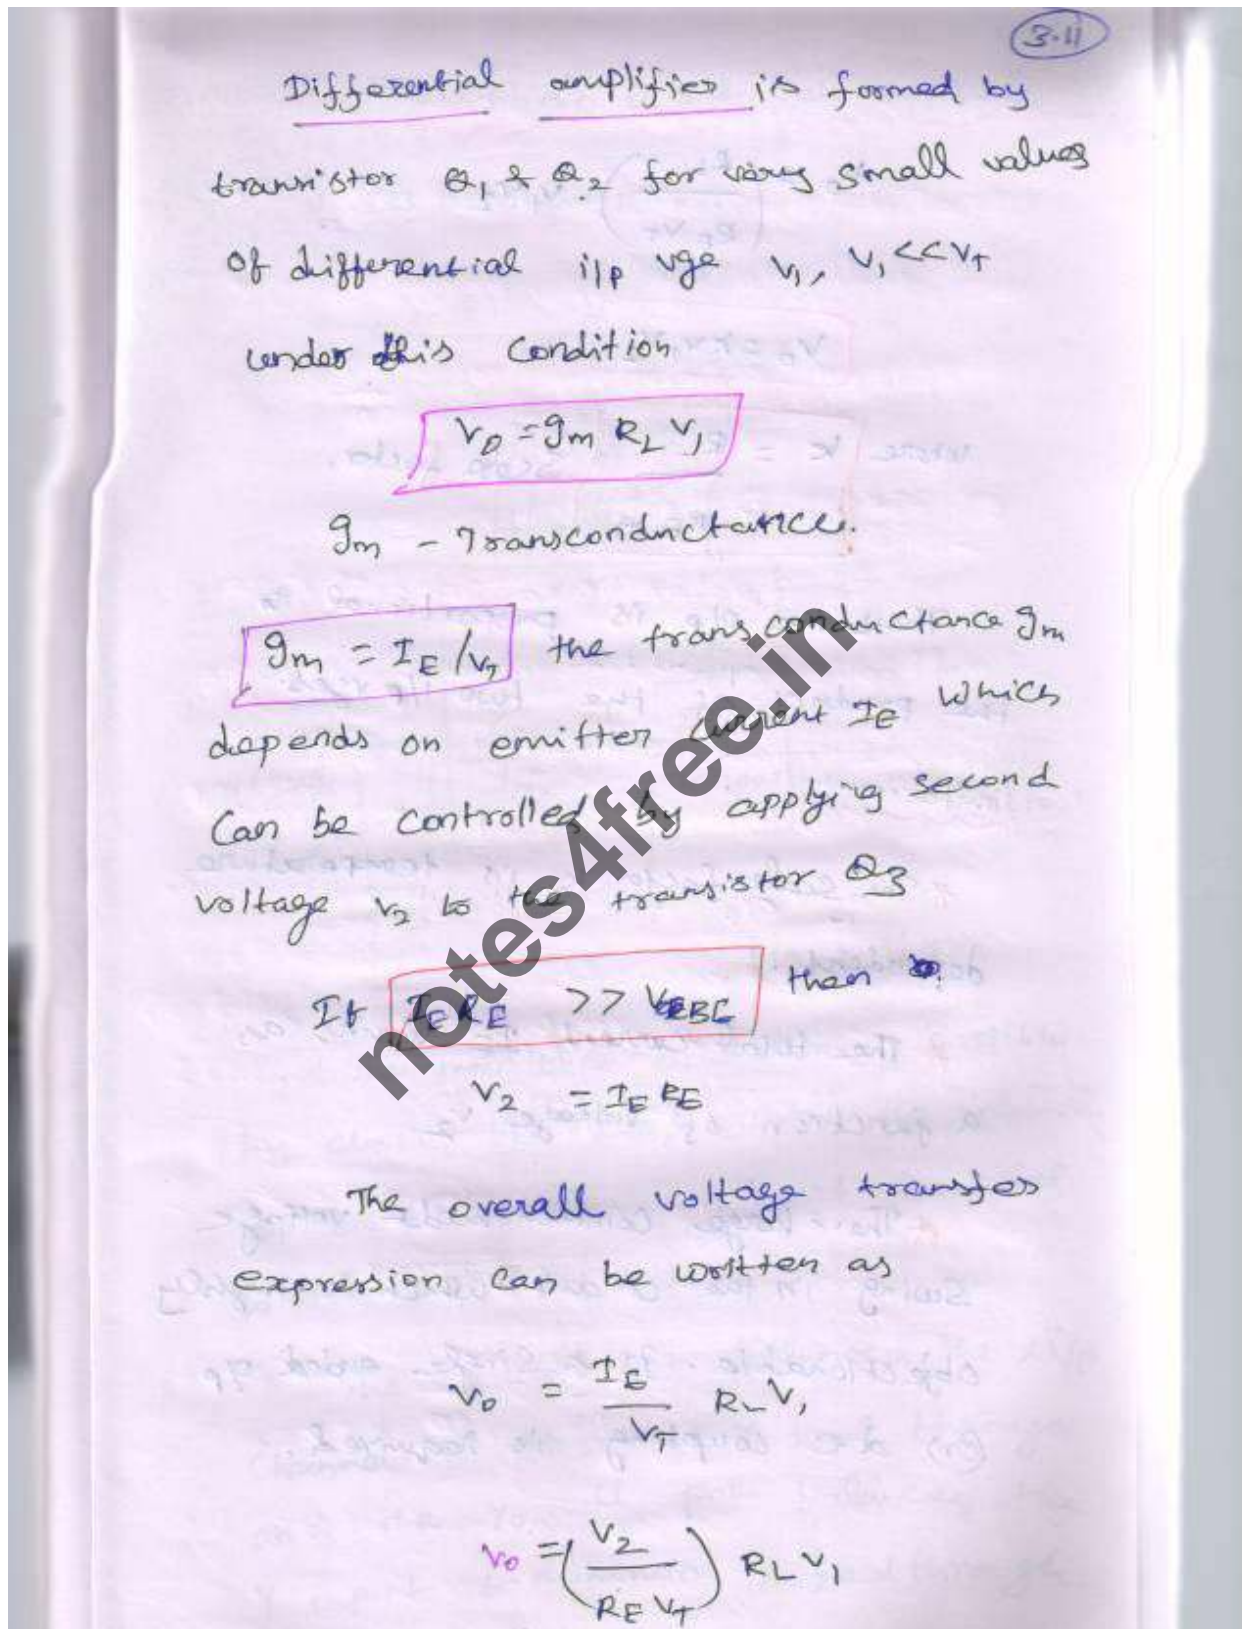 3.11
Differential amplifier is formed by
transistor Q₁ & Q₂ for very small values
of differential i/p vge V₁, V₁ << V_T
under this condition
V₀ = g_m R_L V₁
g_m - Transconductance.
g_m = I_E / V_T the transconductance g_m
depends on emitter current I_E which
can be controlled by applying second
voltage V₂ to the transistor Q₃
If I_E R_E >> V_BE then
V₂ = I_E R_E
The overall voltage transfer
expression can be written as
V₀ = I_E / V_T R_L V₁
V₀ = (V₂ / R_E V_T) R_L V₁
notes4free.in